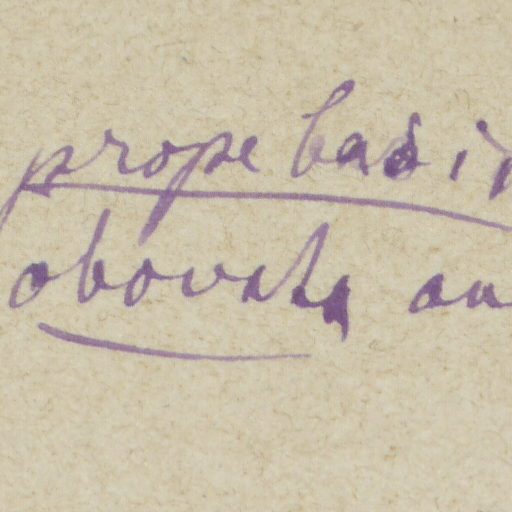 prope basi
obovata